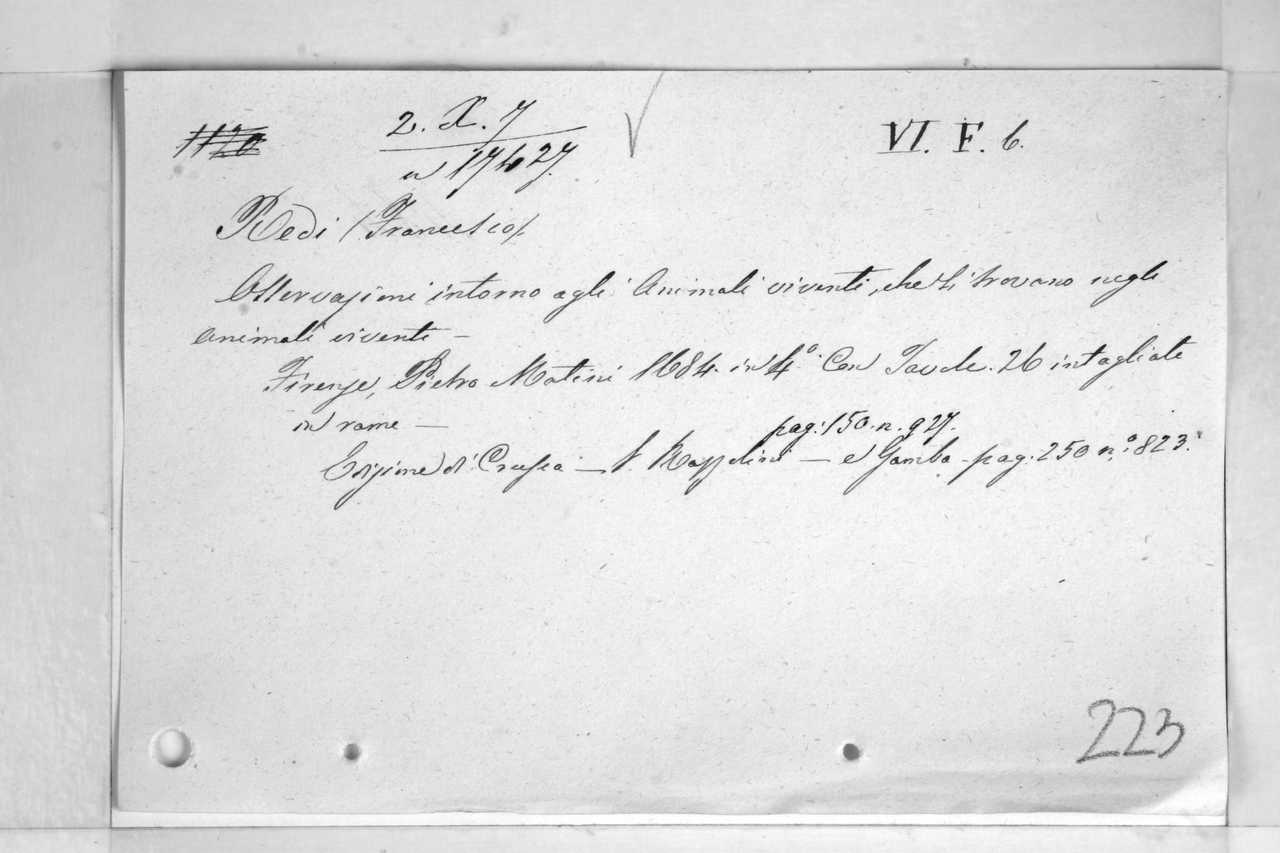 1120 2. X. 7 VI. F. 6.
n 17427.
Redi (Francesco).
Osservazioni intorno agli Animali viventi, che si trovano negli
animali viventi —
Firenze, Pietro Matini 1684. in 4.° Con Tavole. 26 intagliate
in rame —
pag: 150. n. 927.
Edizione di Crusca — V. Razzolini — e Gamba - pag. 250 n.° 823.
223